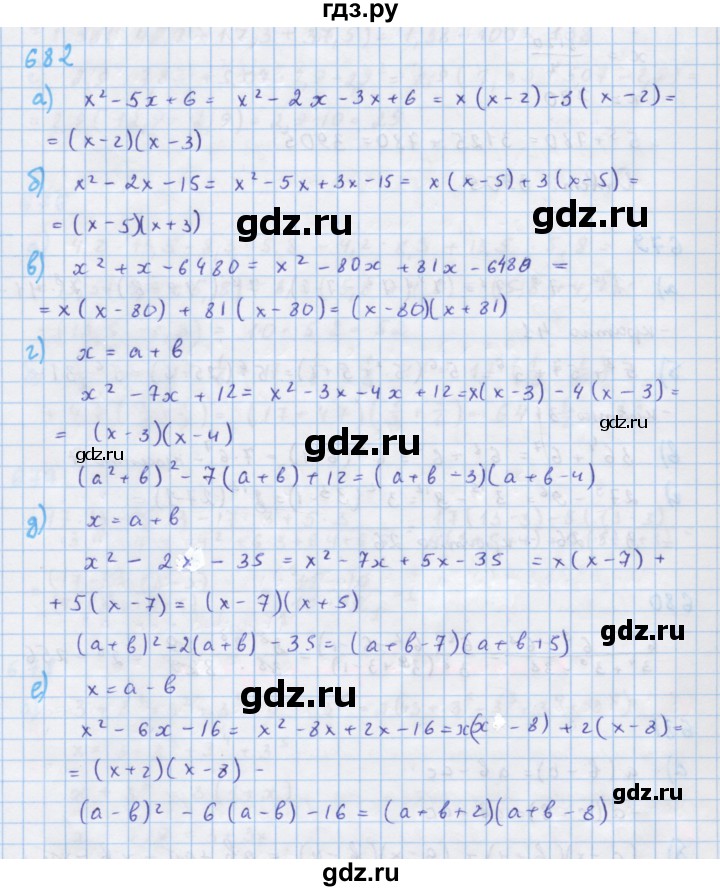 гдз.ру
682
а) x² - 5x + 6 = x² - 2x - 3x + 6 = x(x-2) - 3(x-2) =
= (x-2)(x-3)
б) x² - 2x - 15 = x² - 5x + 3x - 15 = x(x-5) + 3(x-5) =
= (x-5)(x+3)
gdz.ru
gdz.ru
в) x² + x - 6480 = x² - 80x + 81x - 6480 =
= x(x-80) + 81(x-80) = (x-80)(x+81)
г) x = a + b
x² - 7x + 12 = x² - 3x - 4x + 12 = x(x-3) - 4(x-3) =
gdz.ru
= (x-3)(x-4)
gdz.ru
gdz.ru
(a²+b)² - 7(a+b) + 12 = (a+b-3)(a+b-4)
д) x = a + b
x² - 2x - 35 = x² - 7x + 5x - 35 = x(x-7) +
+ 5(x-7) = (x-7)(x+5)
gdz.ru
(a+b)² - 2(a+b) - 35 = (a+b-7)(a+b+5)
е) x = a - b
gdz.ru
x² - 6x - 16 = x² - 8x + 2x - 16 = x(x - 8) + 2(x-8) =
= (x+2)(x-8) -
gdz.ru
(a-b)² - 6(a-b) - 16 = (a+b+2)(a+b-8)
gdz.ru